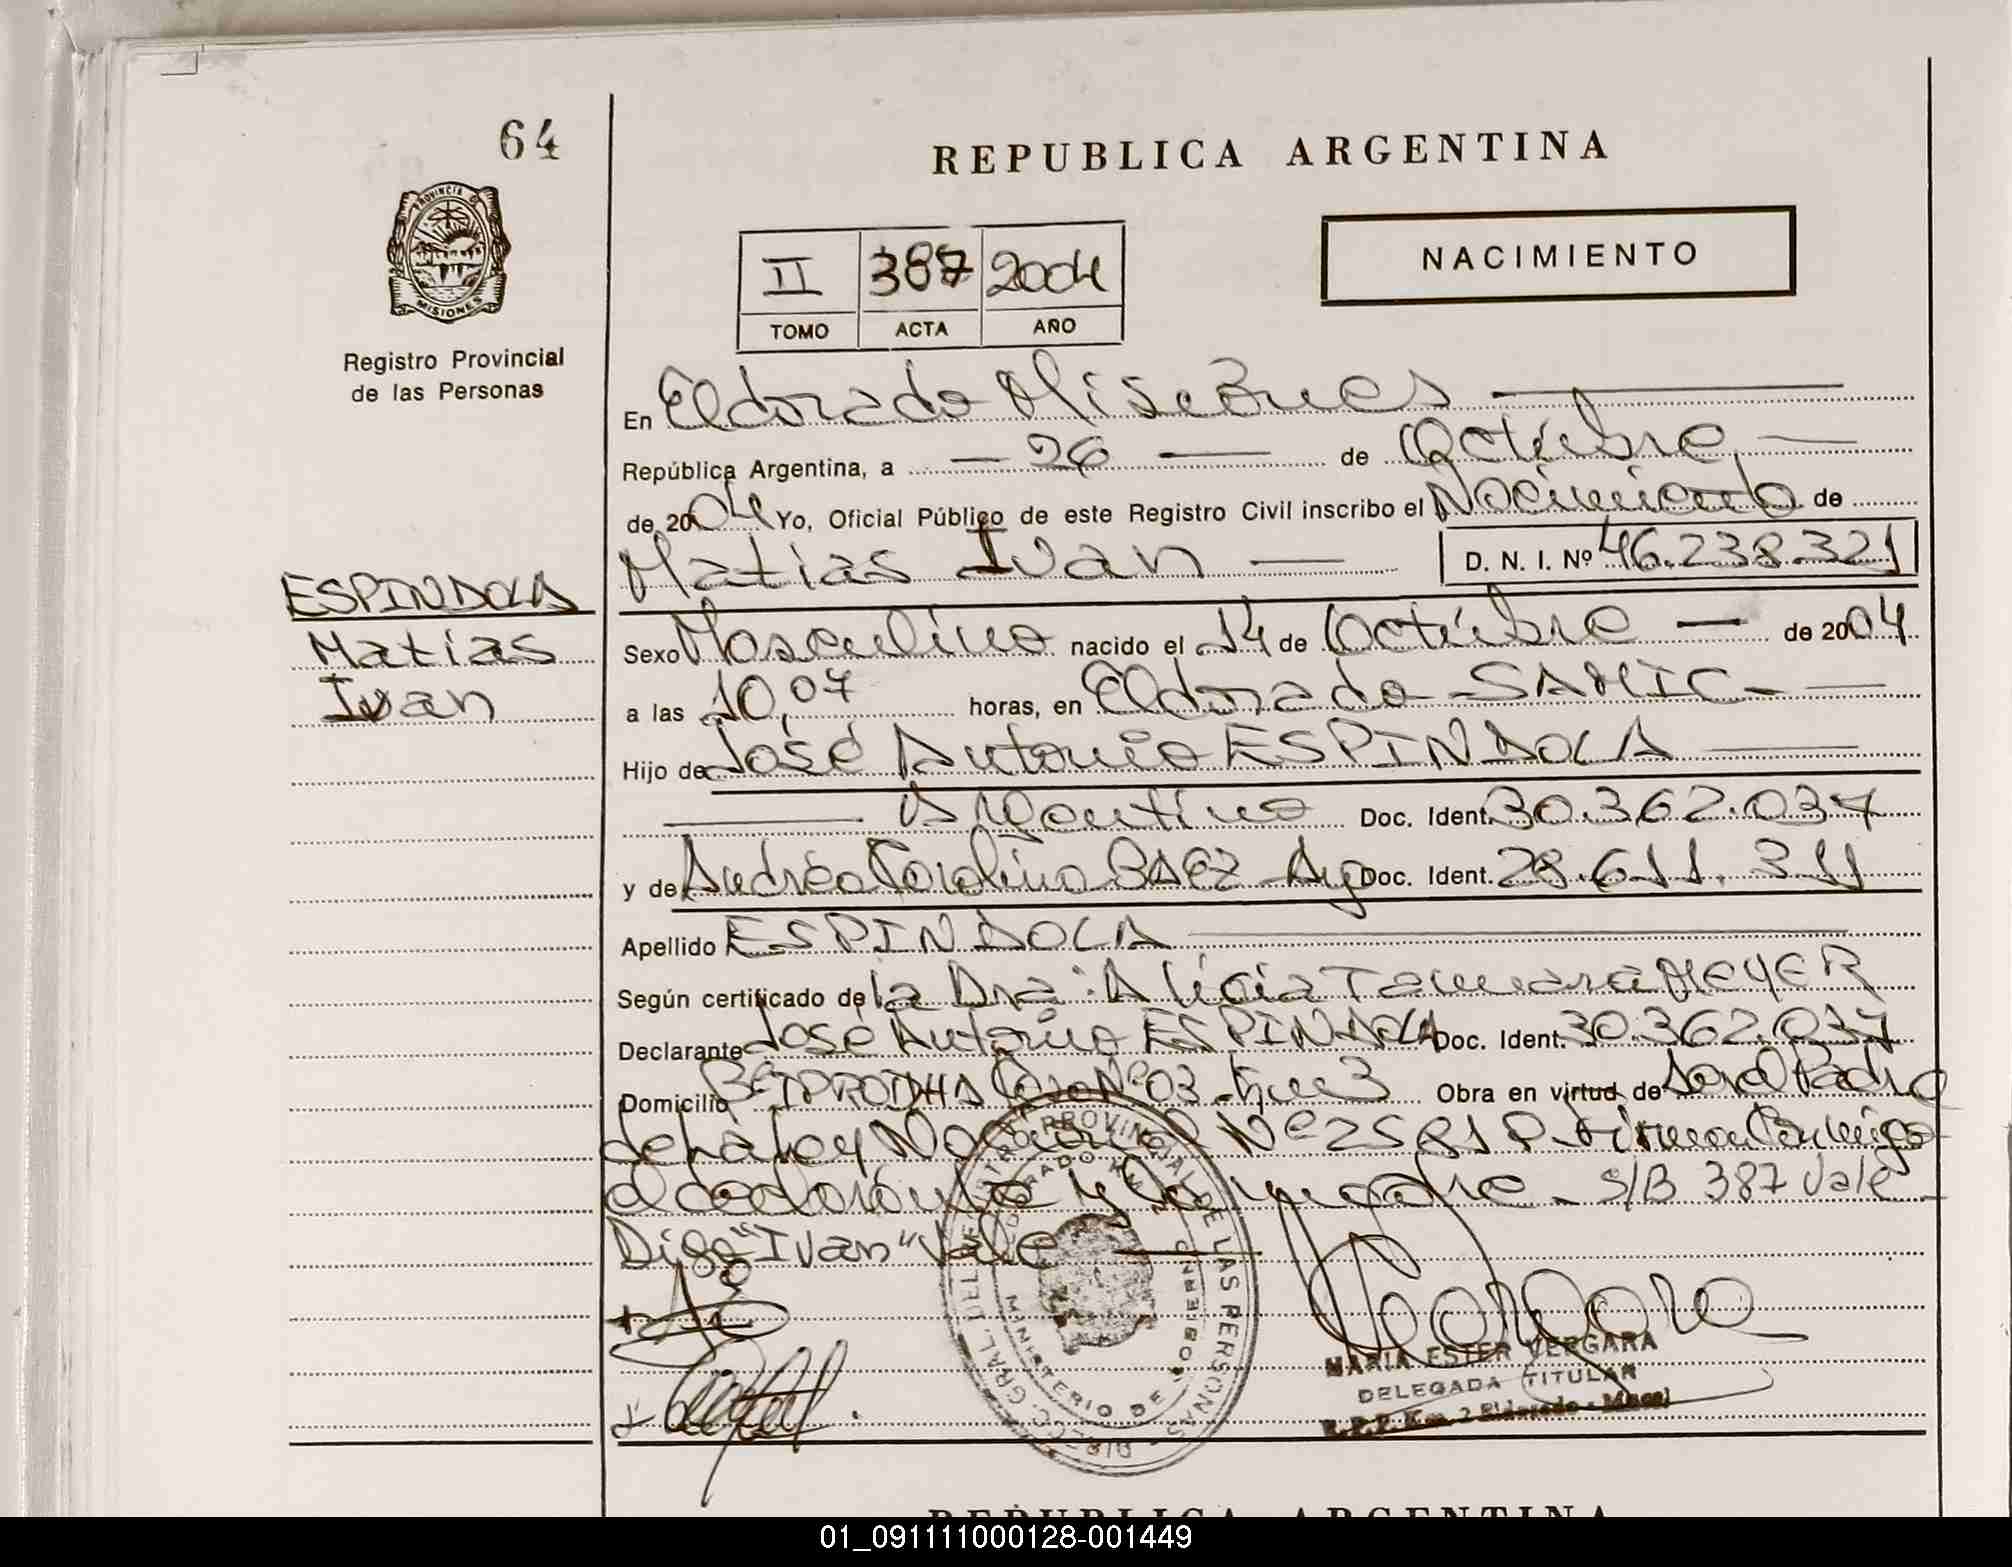 64
REPUBLICA ARGENTINA
PROVINCIA DE
MISIONES
Registro Provincial
de las Personas
NACIMIENTO
II 387 2004
TOMO ACTA AÑO
En Eldorado Misiones
República Argentina, a — 26 — de Octubre —
de 2004 Yo, Oficial Público de este Registro Civil inscribo el Nacimiento de
Matias Ivan — D. N. I. Nº 46.238.321
ESPINDOLA
Matias
Ivan
Sexo Masculino nacido el 14 de Octubre — de 2004
a las 10,07 horas, en Eldorado SAMIC - —
Hijo de José Antonio ESPINDOLA —
— Argentino Doc. Ident. 30.362.037
y de Andrea Carolina BAEZ - Arg Doc. Ident. 28.611.311
Apellido ESPINDOLA —
Según certificado de la Dra: Alicia Tamara MEYER
Declarante José Antonio ESPINDOLA Doc. Ident. 30.362.037
Domicilio Bº IPRODHA Casa Nº 03 - Km 3 Obra en virtud de ser el Padre
de la Ley Nacional Nº Firman Conmigo
el declarante y la madre - S/B 387 Vale -
Digo "Ivan" Vale —
MARIA ESTER VERGARA
DELEGADA TITULAR
R.P.P. Km. 2 Eldorado - Mnes
DIRECC. GRAL. DEL REGISTRO PROVINCIAL DE LAS PERSONAS
MINISTERIO DE GOBIERNO
REPUBLICA ARGENTINA
01_091111000128-001449